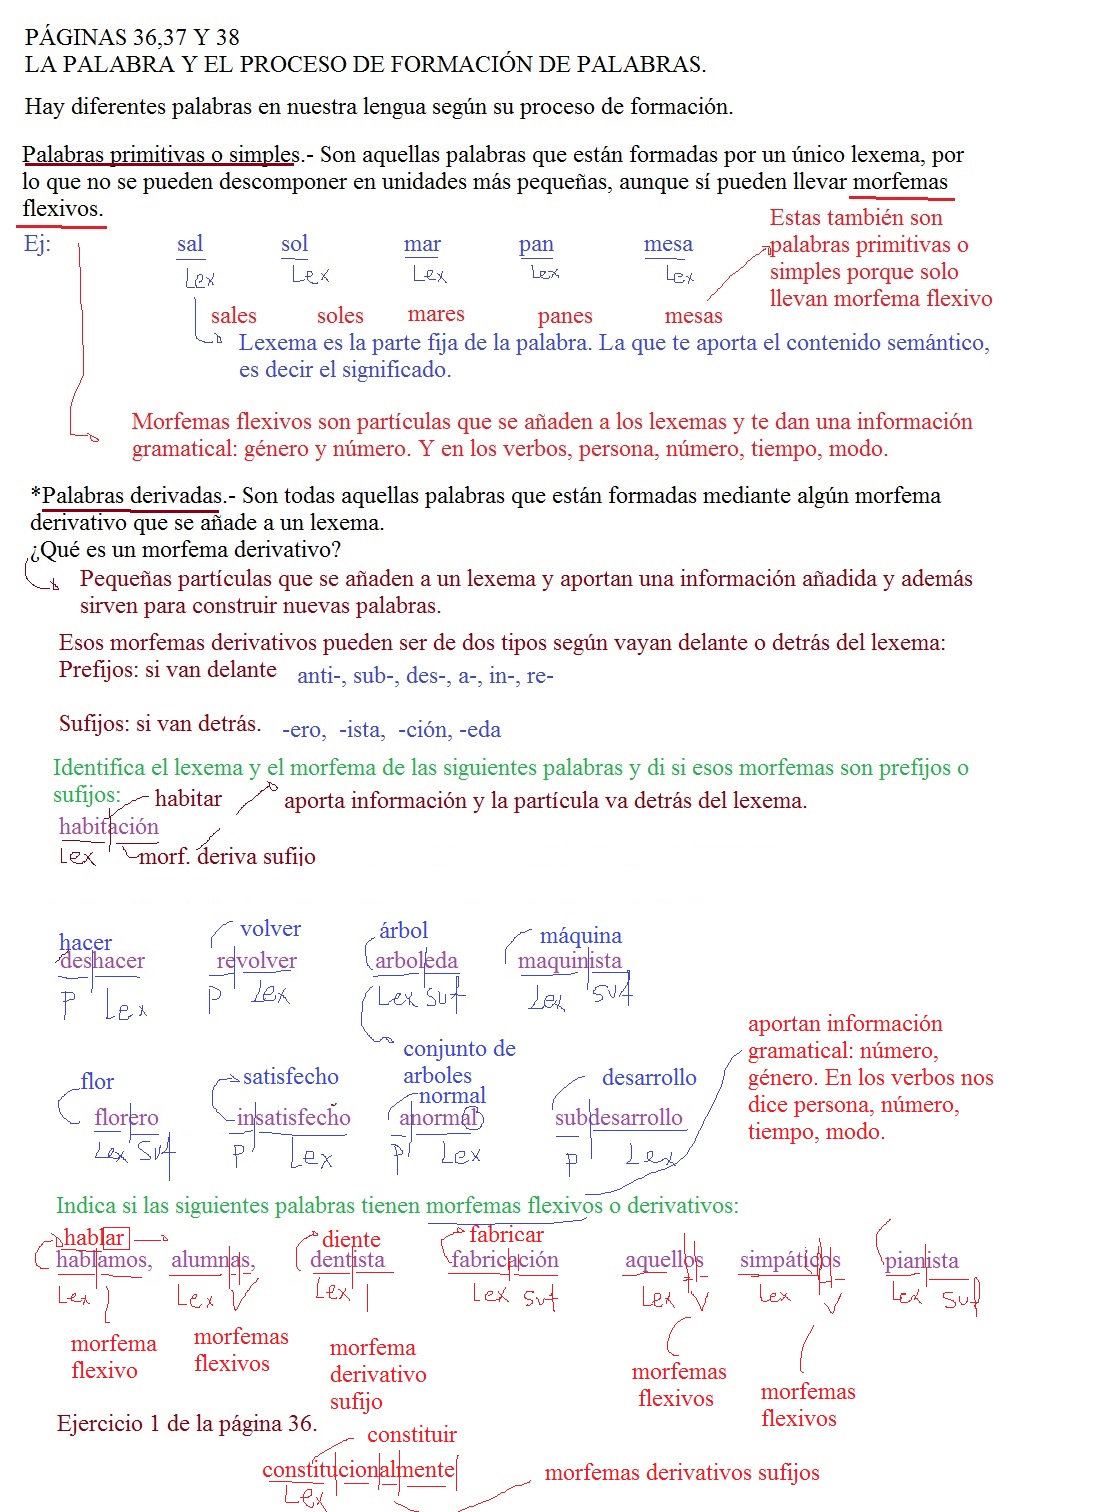 PÁGINAS 36,37 Y 38
LA PALABRA Y EL PROCESO DE FORMACIÓN DE PALABRAS.
Hay diferentes palabras en nuestra lengua según su proceso de formación.
Palabras primitivas o simples.- Son aquellas palabras que están formadas por un único lexema, por
lo que no se pueden descomponer en unidades más pequeñas, aunque sí pueden llevar morfemas
flexivos.
Estas también son
palabras primitivas o
simples porque solo
llevan morfema flexivo
Ej: sal sol mar pan mesa
Lex Lex Lex Lex Lex
sales soles mares panes mesas
Lexema es la parte fija de la palabra. La que te aporta el contenido semántico,
es decir el significado.
Morfemas flexivos son partículas que se añaden a los lexemas y te dan una información
gramatical: género y número. Y en los verbos, persona, número, tiempo, modo.
*Palabras derivadas.- Son todas aquellas palabras que están formadas mediante algún morfema
derivativo que se añade a un lexema.
¿Qué es un morfema derivativo?
Pequeñas partículas que se añaden a un lexema y aportan una información añadida y además
sirven para construir nuevas palabras.
Esos morfemas derivativos pueden ser de dos tipos según vayan delante o detrás del lexema:
Prefijos: si van delante anti-, sub-, des-, a-, in-, re-
Sufijos: si van detrás. -ero, -ista, -ción, -eda
Identifica el lexema y el morfema de las siguientes palabras y di si esos morfemas son prefijos o
sufijos:
habitar aporta información y la partícula va detrás del lexema.
habitación
Lex morf. deriva sufijo
hacer volver árbol máquina
deshacer revolver arboleda maquinista
P Lex P Lex Lex Suf Lex Suf
conjunto de
arboles
aportan información
gramatical: número,
género. En los verbos nos
dice persona, número,
tiempo, modo.
flor satisfecho normal desarrollo
florero insatisfecho anormal subdesarrollo
Lex Suf P Lex P Lex P Lex
Indica si las siguientes palabras tienen morfemas flexivos o derivativos:
hablar diente fabricar
hablamos, alumnas, dentista fabricación aquellos simpáticos pianista
Lex Lex Lex Lex Suf Lex Lex Lex Suf
morfema
flexivo
morfemas
flexivos
morfema
derivativo
sufijo
morfemas
flexivos
morfemas
flexivos
Ejercicio 1 de la página 36.
constituir
constitucionalmente
Lex
morfemas derivativos sufijos